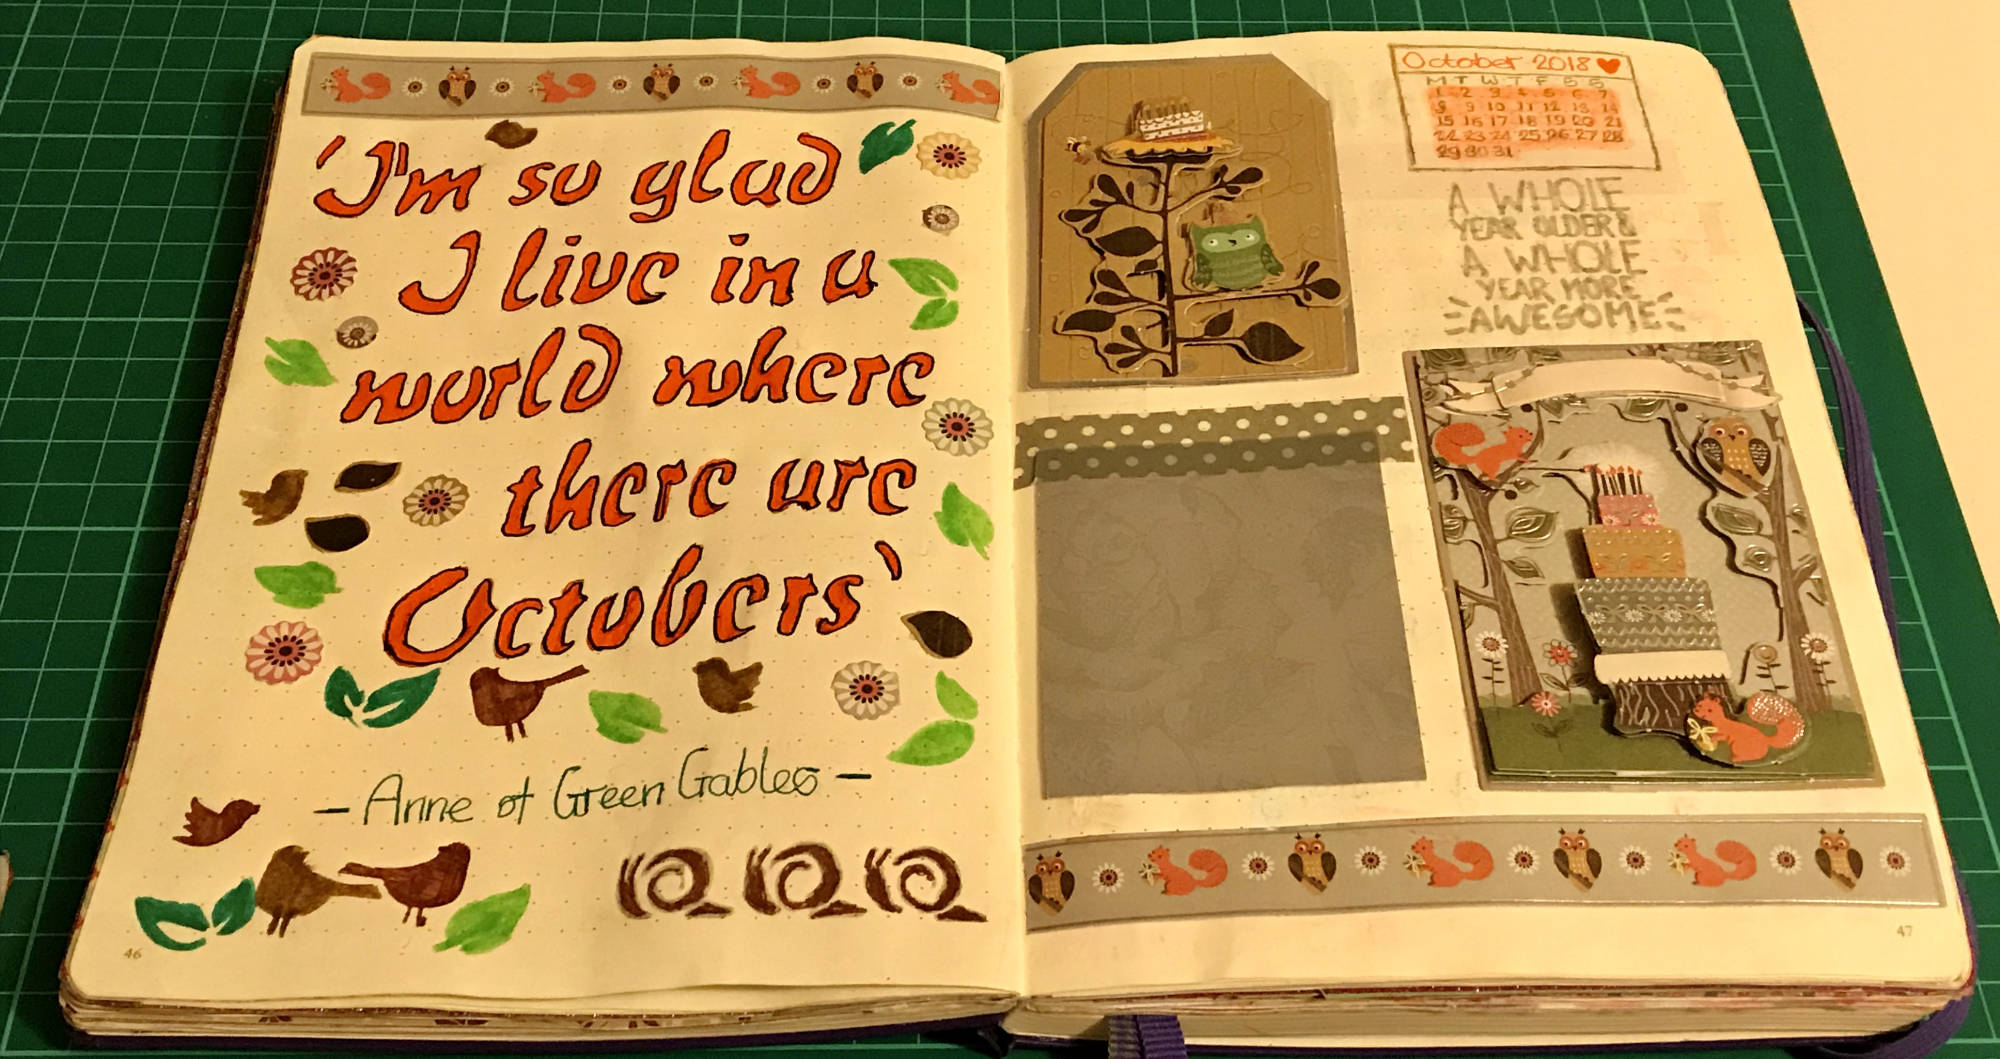 'I'm so glad
I live in a
world where
there are
Octobers'
- Anne of Green Gables -
46
October 2018
M T W T F S S
1 2 3 4 5 6 7
8 9 10 11 12 13 14
15 16 17 18 19 20 21
22 23 24 25 26 27 28
29 30 31
A WHOLE
YEAR OLDER &
A WHOLE
YEAR MORE
AWESOME
47